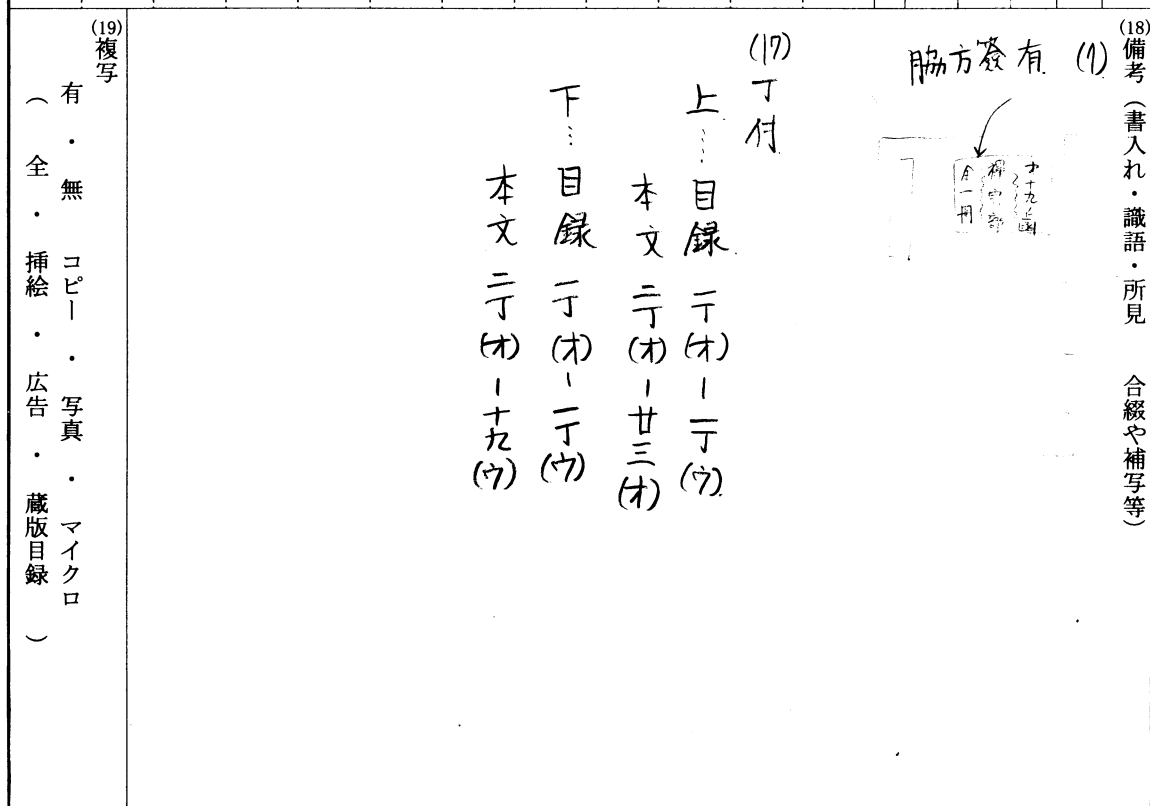 (18) 備考（書入れ・識語・所見　合綴や補写等）
(7) 脇方簽有
全一冊
(17) 丁付
上… 目録 一丁(オ)-一丁(ウ)
本文 二丁(オ)-廿三(オ)
下… 目録 一丁(オ)-一丁(ウ)
本文 二丁(オ)-十九(ウ)
(19) 複写
有・無　コピー・写真・マイクロ
（全・挿絵・広告・蔵版目録）